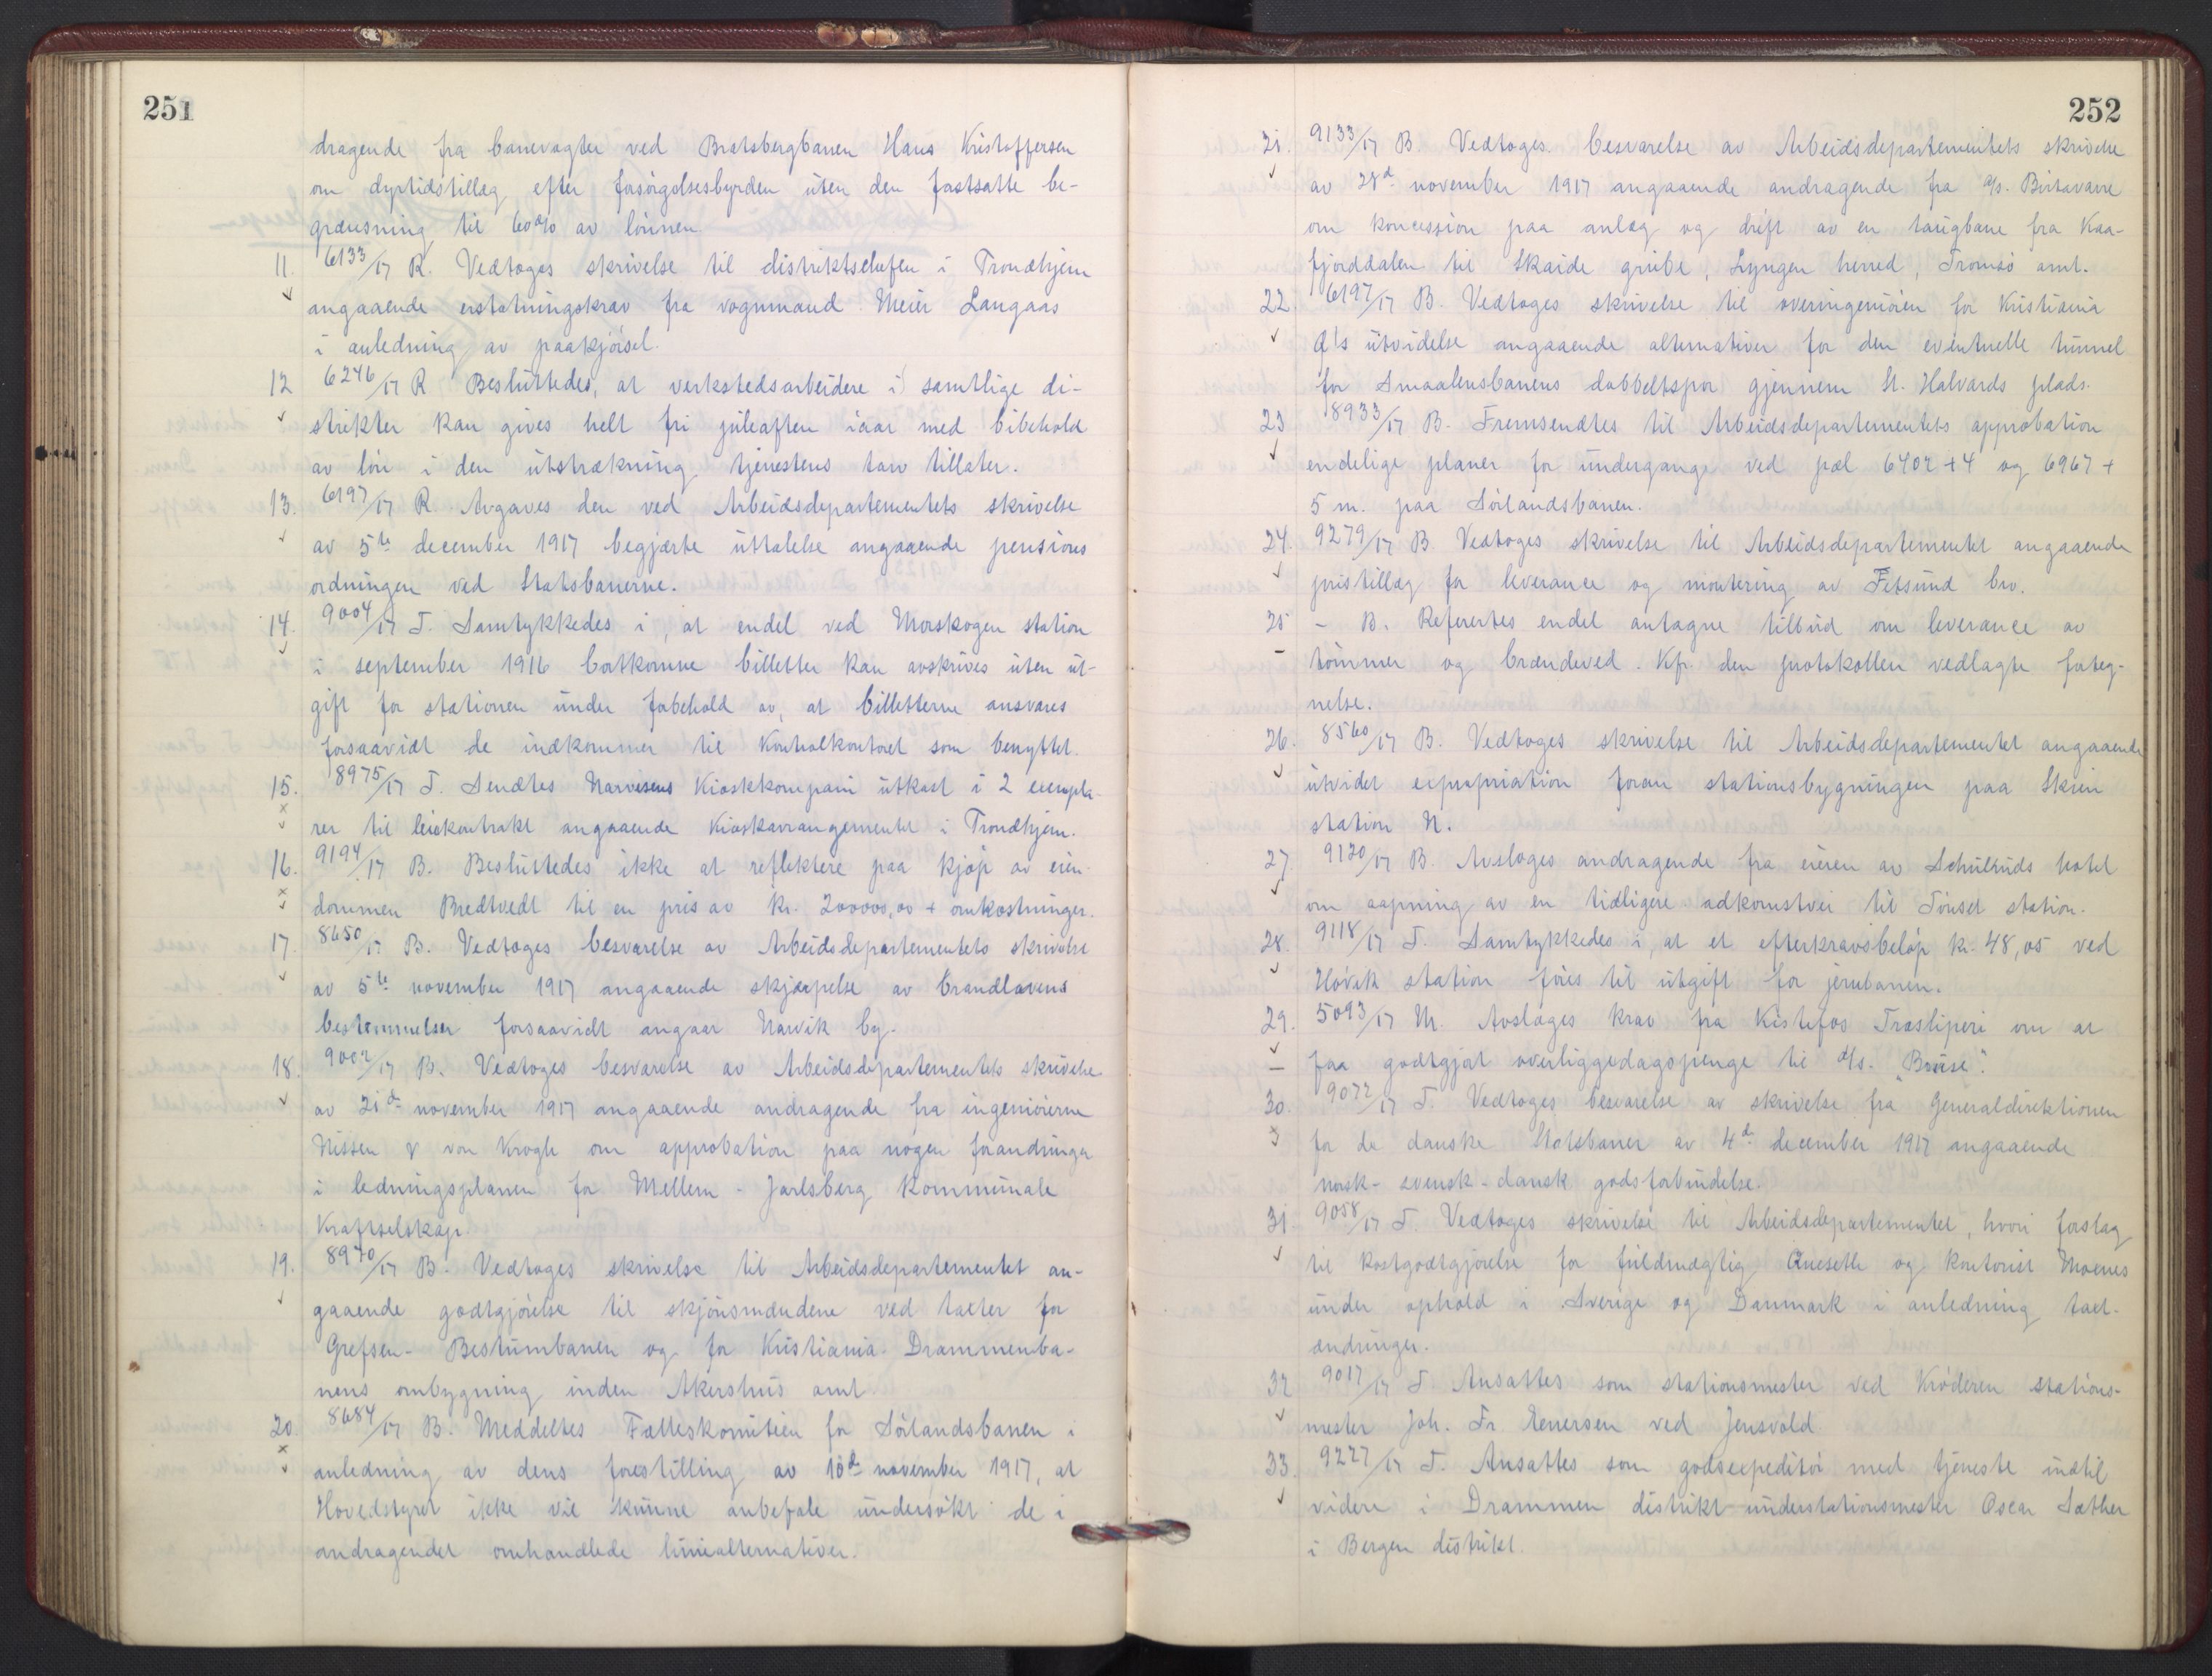 251
dragende fra banevogter ved Bratsbergbanen Hans Kristoffersen
om dyrtidstillæg efter forsørgelsesbyrden uten den fastsatte be-
grænsning til 60% av lønnen.
11. 6133/17 R. Vedtoges skrivelse til distriktschefen i Trondhjem
angaaende erstatningskrav fra vognmand Meier Langaas
i anledning av paakjørsel.
12 6246/17 R Besluttedes, at verkstedsarbeidere i samtlige di-
strikter kan gives helt fri juleaften iaar med bibehold
av løn i den utstrækning tjenestens tarv tillater.
13. 6197/17 R. Avgaves den ved Arbeidsdepartementets skrivelse
av 5te december 1917 begjærte uttalelse angaaende pensions
ordningen ved Statsbanerne.
14. 9004/17 T. Samtykkedes i, at endel ved Morskogen station
i september 1916 bortkomne billetter kan avskrives uten ut-
gift for stationen under forbehold av, at billetterne ansvares
forsaavidt de indkommer til Kontrolkontoret som benyttet.
15. 8975/17 T. Sendtes Narvesens Kioskkompani utkast i 2 exempla-
rer til leiekontrakt angaaende kioskarrangementet i Trondhjem.
16. 9194/17 B. Besluttedes ikke at reflektere paa kjøp av eien-
dommen Bredtvedt til en pris av kr. 200000,00 + omkostninger.
17. 8650/17 B. Vedtoges besvarelse av Arbeidsdepartementets skrivelse
av 5te november 1917 angaaende skjærpelse av brandlovens
bestemmelser forsaavidt angaar Narvik by.
18. 9002/17 B. Vedtoges besvarelse av Arbeidsdepartementets skrivelse
av 21de november 1917 angaaende andragende fra ingeniørerne
Nissen & von Krogh om approbation paa nogen forandringer
i ledningsplanen for Mellem-Jarlsberg Kommunale
Kraftselskap.
19. 8970/17 B. Vedtoges skrivelse til Arbeidsdepartementet an-
gaaende godtgjørelse til skjønsmændene ved takter for
Grefsen-Bestumbanen og for Kristiania-Drammenba-
nens ombygning inden Akershus amt.
20. 8684/17 B. Meddeltes Fælleskomiteen for Sørlandsbanen i
anledning av dens forestilling av 10de november 1917, at
Hovedstyret ikke vil kunne anbefale undersøkt de i
andragendet omhandlede linjealternativer.
252
21. 9133/17 B. Vedtoges besvarelse av Arbeidsdepartementets skrivelse
av 28de november 1917 angaaende andragende fra a/s. Birtavarre
om koncession paa anlæg og drift av en taugbane fra Kaa-
fjorddalen til Skaide grube, Lyngen herred, Tromsø amt.
22. 6197/17 B. Vedtoges skrivelse til overingeniøren for Kristiania
Ø's utvidelse angaaende alternativer for den eventuelle tunnel
for Smaalensbanens dobbeltspor gjennem St. Halvards plads.
23 8933/17 B. Fremsendtes til Arbeidsdepartementets approbation
endelige planer for undergange ved pæl 6402 + 4 og 6967 +
5 m. paa Sørlandsbanen.
24. 9279/17 B. Vedtoges skrivelse til Arbeidsdepartementet angaaende
pristillæg for leverance og montering av Fetsund bro.
25 - B. Referertes endel antagne tilbud om leverance av
tømmer og brændeved. Kfr. den protokollen vedlagte forteg-
nelse.
26. 8560/17 B. Vedtoges skrivelse til Arbeidsdepartementet angaaende
utvidet expropriation foran stationsbygningen paa Skien
station N.
27. 9120/17 B. Avsloges andragende fra eieren av Schulruds hotel
om aapning av en tidligere adkomstvei til Tønset station.
28. 9118/17 T. Samtykkedes i, at et efterkravsbeløp kr. 48,05 ved
Høvik station føres til utgift for jernbanen.
29. 5093/17 M. Avsloges krav fra Kistefos Træsliperi om at
faa godtgjort overliggedagspenge til d/s. "Bruse".
30. 9072/17 T. Vedtoges besvarelse av skrivelse fra Generaldirektionen
for de danske Statsbaner av 4de december 1917 angaaende
norsk-svensk-dansk godsforbindelse.
31. 9058/17 T. Vedtoges skrivelse til Arbeidsdepartementet, hvori forslag
til kostgodtgjørelse for fuldmægtig Queseth og kontorist Moenes
under ophold i Sverige og Danmark i anledning takst-
ændringer.
32 9017/17 T. Ansattes som stationsmester ved Krøderen stations-
mester Joh. Fr. Enersen ved Jensvold.
33. 9227/17 T. Ansattes som godsexpeditør med tjeneste indtil
videre i Drammen distrikt understationsmester Oscar Sæther
i Bergen distrikt.